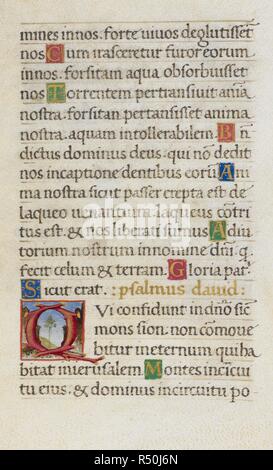 mines in nos. forte uiuos deglutisset
nos Cum irasceretur furor eorum
in nos. forsitam aqua obsorbuisset
nos Torrentem pertransiuit aīa
nostra. forsitan pertansisset anima
nostra. aquam intollerabilem Bn
dictus dominus deus. qui nō dedit
nos in captione dentibus eorū Am
ma nostra sicut passer erepta est de
laqueo uenantium laqueus cōtri
tus est. & nos liberati sumus Adiu
torium nostrum in nomine dn̄i. q
fecit celum & terram. Gloria pat.
Sicut erat. psalmus dauid:
QVi confidunt in dn̄o sic̄
mons sion. non cōmoue
bitur in eternum qui ha
bitat in ierusalem Montes in cīcui
tu eius. & dominus in circuitu po
alamy
Image ID: R50J6N
www.alamy.com